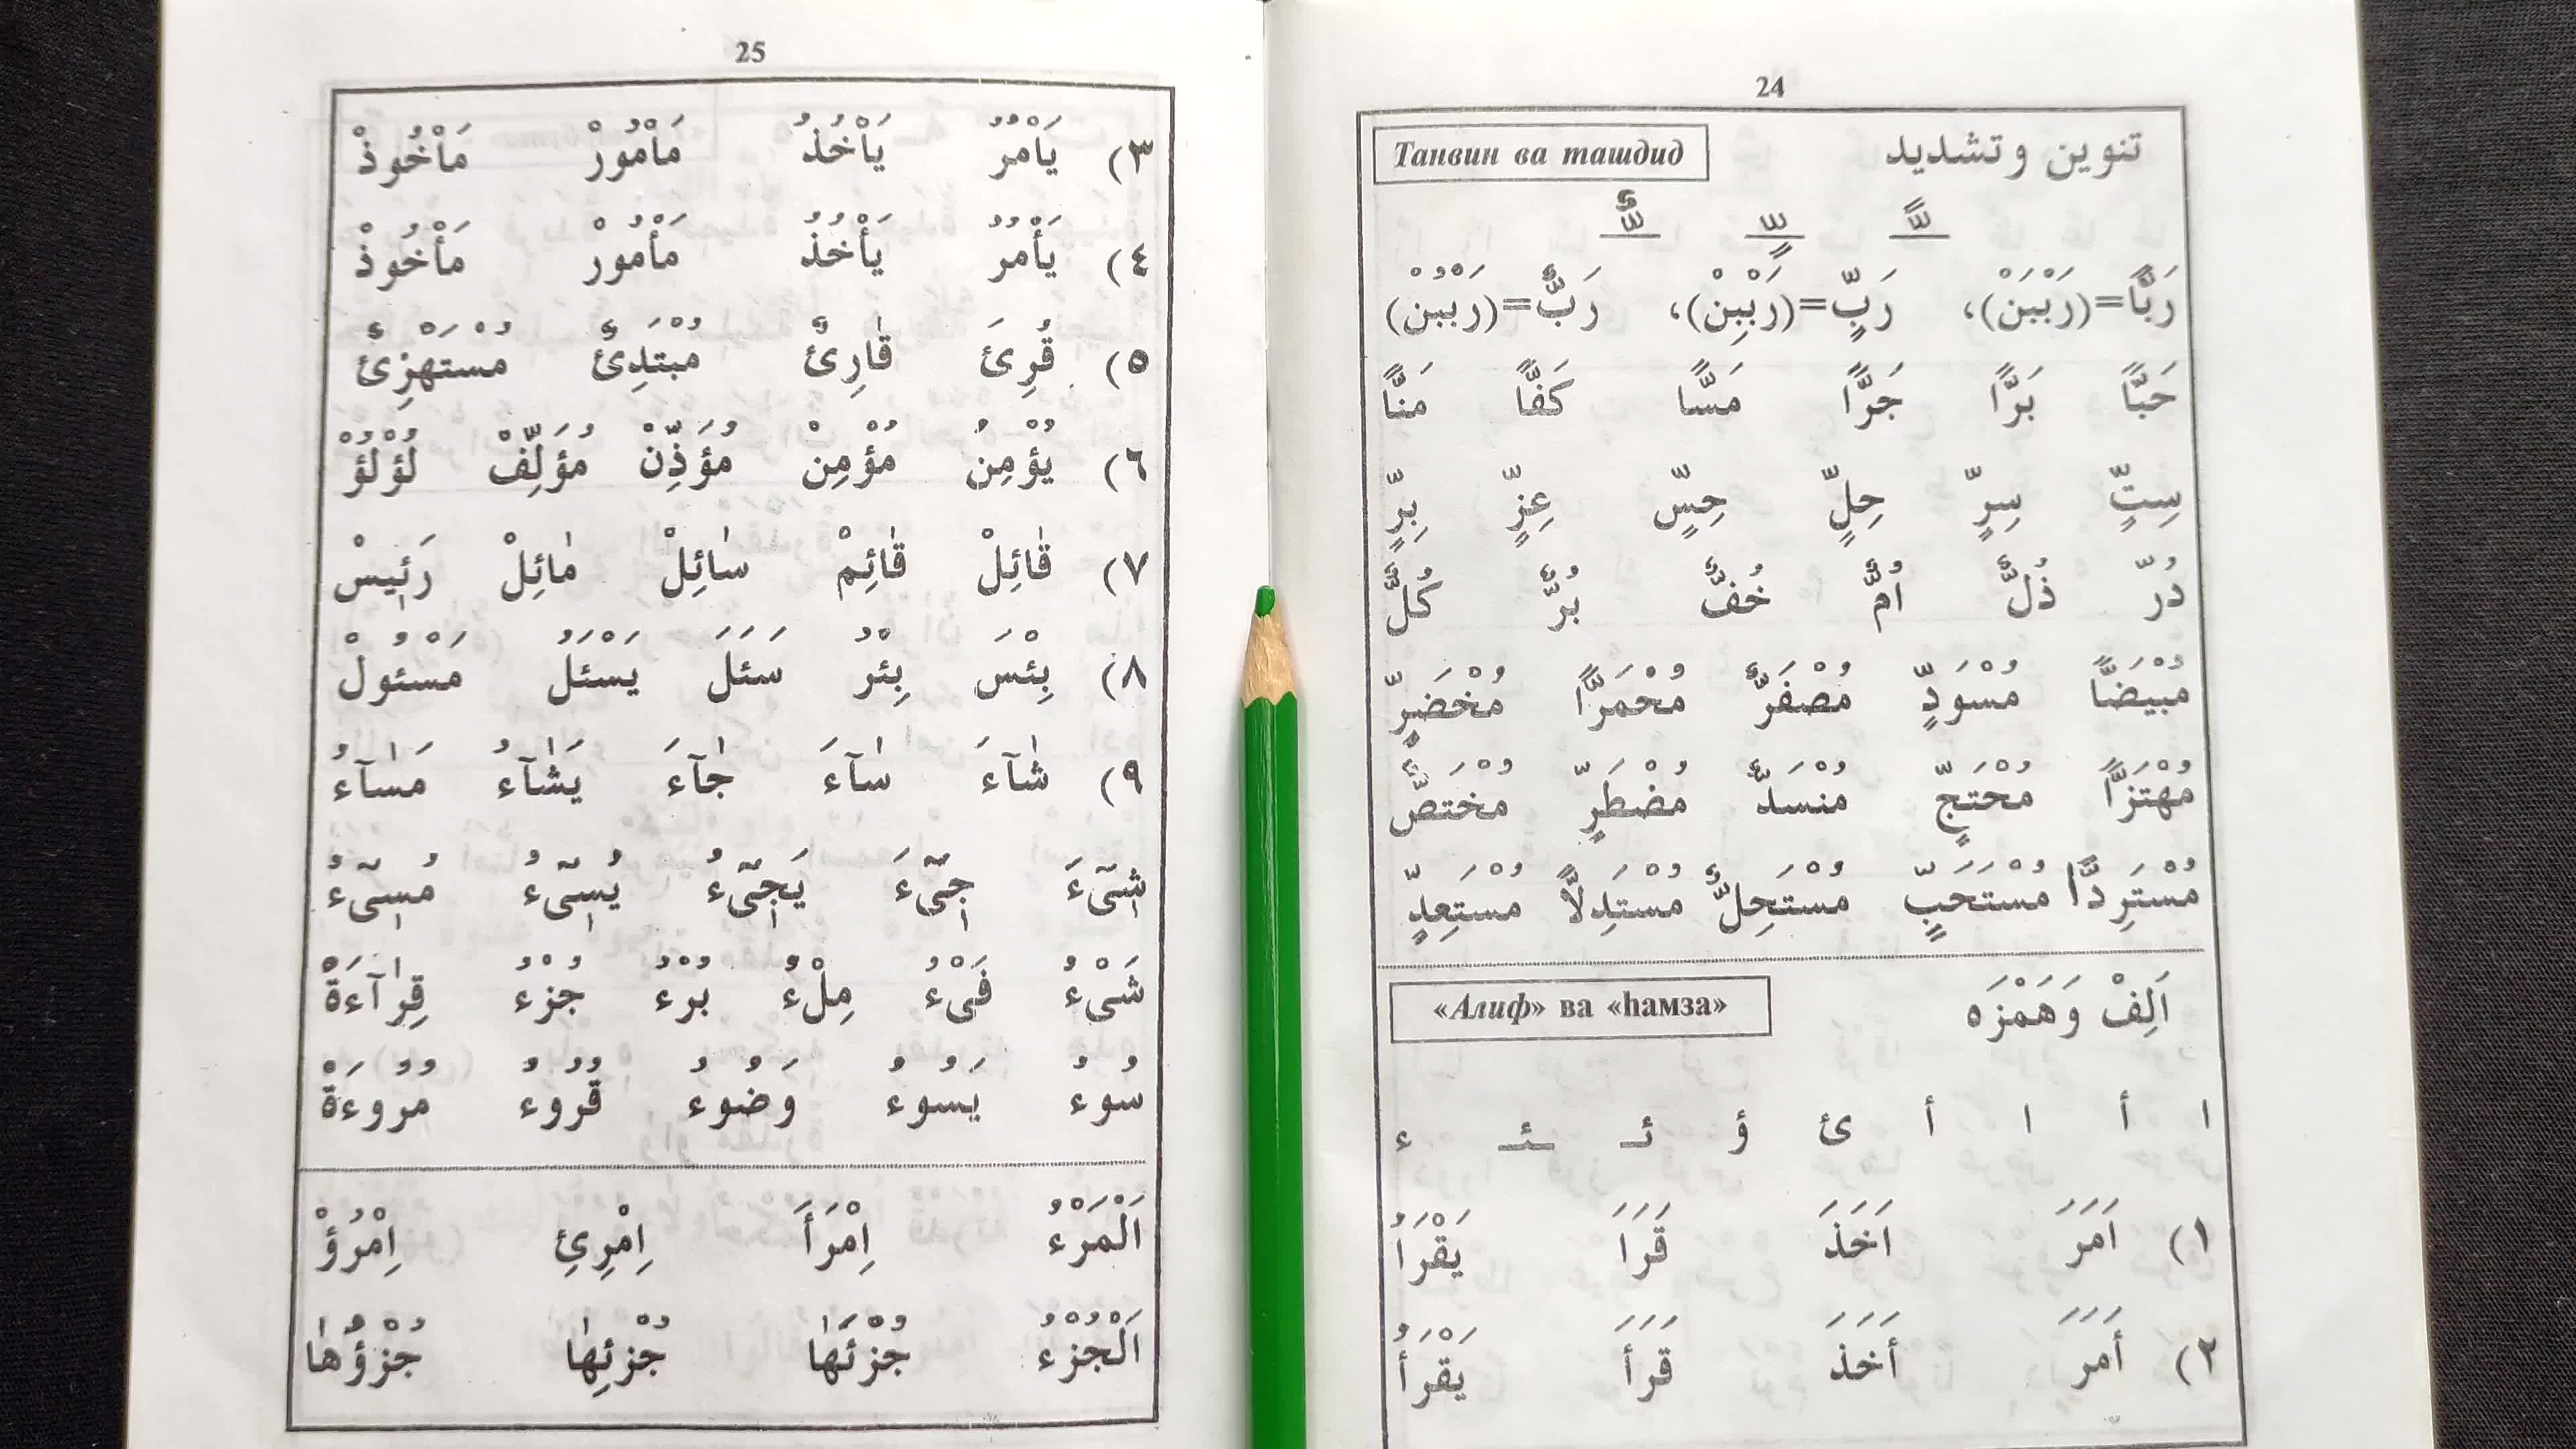 24
تنوين و تشديد
Танвин ва ташдид
ـًّـ ـٍّـ ـٌّـ
رَبًّا=(رَبْبَنْ)، رَبٍّ=(رَبْبِنْ)، رَبٌّ=(رَبْبُنْ)
حَبًّا بَرًّا جَرًّا مَسًّا كَفًّا مَنًّا
سِتٍّ سِرٍّ حِلٍّ حِسٍّ عِزٍّ بِرٍّ
دُرّ ذُلٌّ اُمٌّ خُفٌّ بُرٌّ كُلٌّ
مُبْيَضًّا مُسْوَدٍّ مُصْفَرٌّ مُحْمَرًّا مُخْضَرٍّ
مُهْتَزًّا مُحْتَجٍّ مُنْسَدٌّ مُضْطَرٍّ مُخْتَصٌّ
مُسْتَرِدًّا مُسْتَحَبٍّ مُسْتَحِلٌّ مُسْتَدِلًّا مُسْتَعِدٍّ
اَلِفْ وَهَمْزَه
«Алиф» ва «һамза»
ا أ ا أ ئ ؤ ئـ ـئـ ء
١) اَمَرَ اَخَذَ قَرَاَ يَقْرَاُ
٢) أَمَرَ أَخَذَ قَرَأَ يَقْرَأُ
25
٣) يَاْمُرُ يَاْخُذُ مَاْمُورْ مَاْخُوذْ
٤) يَأْمُرُ يَأْخُذُ مَأْمُورْ مَأْخُوذْ
٥) قُرِئَ قٰارِئٌ مُبْتَدِئٌ مُسْتَهْزِئٌ
٦) يُؤْمِنُ مُؤْمِنْ مُؤَذِّنْ مُؤَلِّفْ لُؤْلُؤْ
٧) قٰائِلْ قٰائِمْ سٰائِلْ مٰائِلْ رَئٖيسْ
٨) بِئْسَ بِئْرُ سَئَلَ يَسْئَلُ مَسْئُولْ
٩) شٰآءَ سٰآءَ جٰآءَ يَشٰآءُ مَسٰآءُ
شٖىٓءَ جٖىٓءَ يَجٖىٓءُ يُسٖىٓءُ مُسٖىٓءُ
شَىْءُ فَىْءُ مِلْءُ بُرْءُ جُزْءُ قِرٰآءَةْ
سُوءُ يَسُوءُ وَضُوءُ قُرُوءُ مُرُوءَةْ
اَلْمَرْءُ اِمْرَأَ اِمْرِئِ اِمْرُؤْ
اَلْجُزْءُ جُزْئَهٰا جُزْئِهٰا جُزْؤُهٰا